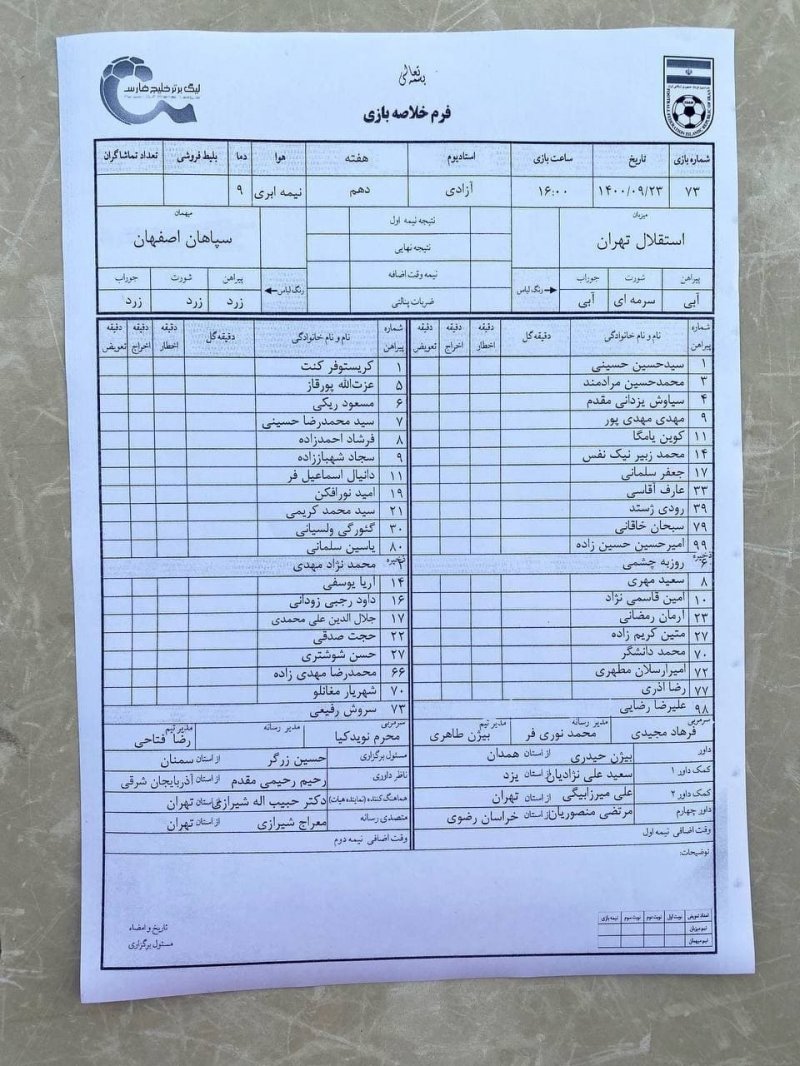 بسمه تعالی
لیگ برتر خلیج فارس
FOOTBALL FEDERATION ISLAMIC REPUBLIC OF IRAN
فرم خلاصه بازی
شماره بازی تاریخ ساعت بازی استادیوم هفته هوا دما بلیط فروشی تعداد تماشاگران
۷۳ ۱۴۰۰/۰۹/۲۳ ۱۶:۰۰ آزادی دهم نیمه ابری ۹
میزبان نتیجه نیمه اول میهمان
استقلال تهران نتیجه نهایی سپاهان اصفهان
پیراهن شورت جوراب رنگ لباس نیمه وقت اضافه رنگ لباس پیراهن شورت جوراب
آبی سرمه ای آبی ضربات پنالتی زرد زرد زرد
شماره پیراهن نام و نام خانوادگی دقیقه گل دقیقه اخطار دقیقه اخراج دقیقه تعویض شماره پیراهن نام و نام خانوادگی دقیقه گل دقیقه اخطار دقیقه اخراج دقیقه تعویض
۱ سیدحسین حسینی ۱ کریستوفر کنت
۳ محمدحسین مرادمند ۵ عزت‌الله پورقاز
۴ سیاوش یزدانی مقدم ۶ مسعود ریکی
۹ مهدی مهدی پور ۷ سید محمدرضا حسینی
۱۱ کوین یامگا ۸ فرشاد احمدزاده
۱۴ محمد زبیر نیک نفس ۹ سجاد شهباززاده
۱۷ جعفر سلمانی ۱۱ دانیال اسماعیل فر
۳۳ عارف آقاسی ۱۹ امید نورافکن
۳۹ رودی ژستد ۲۱ سید محمد کریمی
۷۹ سبحان خاقانی ۳۰ گئورگی ولسیانی
۹۹ امیرحسین حسین زاده ۸۰ یاسین سلمانی
ذخیره ۶ روزبه چشمی ذخیره ۲ محمد نژاد مهدی
۸ سعید مهری ۱۴ آریا یوسفی
۱۰ امین قاسمی نژاد ۱۶ داود رجبی زودانی
۲۳ آرمان رمضانی ۱۷ جلال الدین علی محمدی
۲۷ متین کریم زاده ۲۲ حجت صدقی
۷۰ محمد دانشگر ۲۷ حسن شوشتری
۷۲ امیرارسلان مطهری ۶۶ محمدرضا مهدی زاده
۷۷ رضا آذری ۷۰ شهریار مغانلو
۹۸ علیرضا رضایی ۷۳ سروش رفیعی
سرمربی فرهاد مجیدی مدیر رسانه محمد نوری فر مدیر تیم بیژن طاهری سرمربی محرم نویدکیا مدیر رسانه مدیر تیم رضا فتاحی
داور بیژن حیدری از استان همدان مسئول برگزاری حسین زرگر از استان سمنان
کمک داور ۱ سعید علی نژادیان از استان یزد ناظر داوری رحیم رحیمی مقدم از استان آذربایجان شرقی
کمک داور ۲ علی میرزابیگی از استان تهران هماهنگ کننده (نماینده هیات) دکتر حبیب اله شیرازی از استان تهران
داور چهارم مرتضی منصوریان از استان خراسان رضوی متصدی رسانه معراج شیرازی از استان تهران
وقت اضافی نیمه اول وقت اضافی نیمه دوم
توضیحات:
تعداد تعویض نوبت اول نوبت دوم نوبت سوم نیمه بازی
تیم میزبان
تیم میهمان
تاریخ و امضاء
مسئول برگزاری